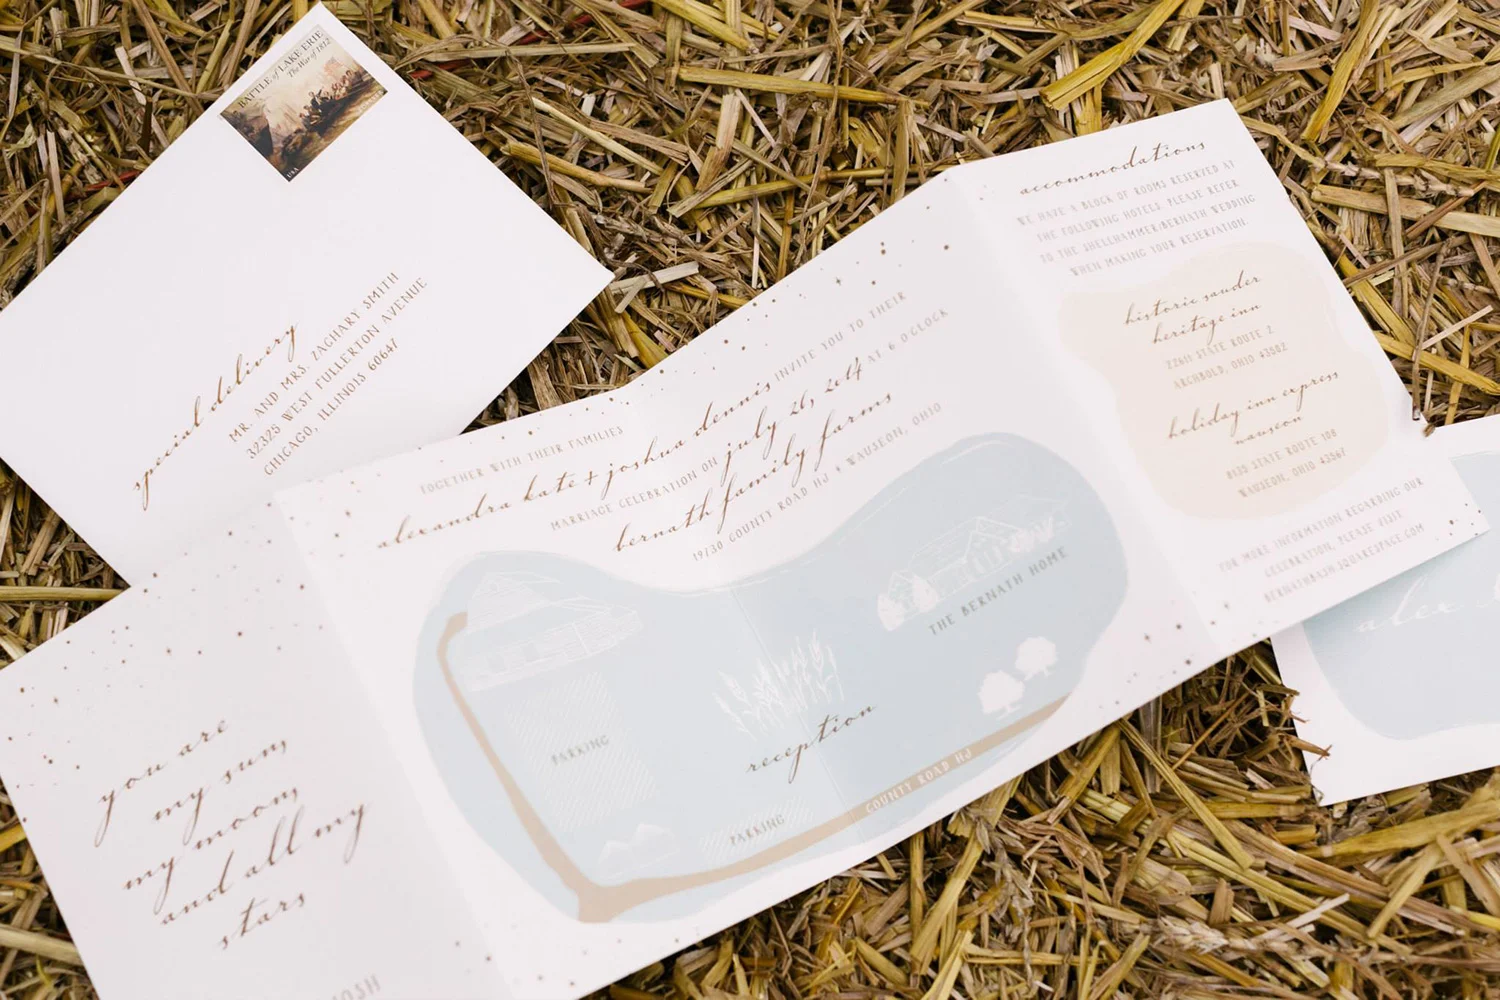 BATTLE of LAKE ERIE
The War of 1812
USA
special delivery
MR. AND MRS. ZACHARY SMITH
32325 WEST FULLERTON AVENUE
CHICAGO, ILLINOIS 60647
you are
my sun,
my moon,
and all my
stars
JOSH
TOGETHER WITH THEIR FAMILIES
alexandra kate + joshua dennis INVITE YOU TO THEIR
MARRIAGE CELEBRATION ON july 26, 2014 AT 6 O'CLOCK
bernath family farms
19730 COUNTY ROAD HJ + WAUSEON, OHIO
THE BERNATH HOME
PARKING
reception
PARKING
COUNTY ROAD HJ
accommodations
WE HAVE A BLOCK OF ROOMS RESERVED AT
THE FOLLOWING HOTELS. PLEASE REFER
TO THE SHELLHAMMER/BERNATH WEDDING
WHEN MAKING YOUR RESERVATION.
historic sauder
heritage inn
22611 STATE ROUTE 2
ARCHBOLD, OHIO 43502
holiday inn express
wauseon
8135 STATE ROUTE 108
WAUSEON, OHIO 43567
FOR MORE INFORMATION REGARDING OUR
CELEBRATION, PLEASE VISIT
BERNATHBASH.SQUARESPACE.COM
alex